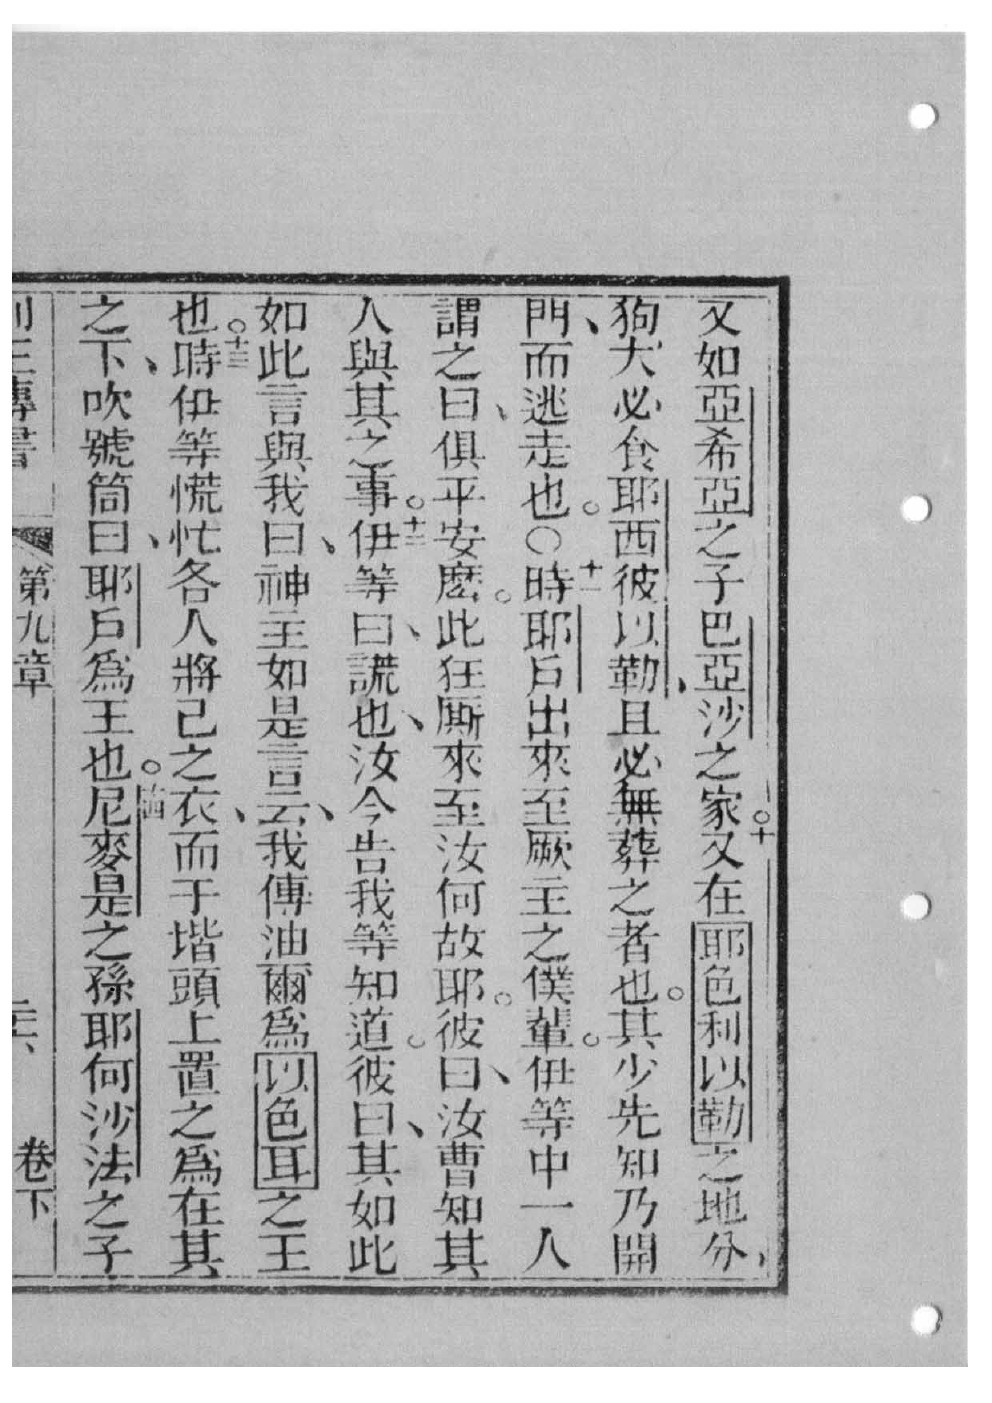 又如亞希亞之子巴亞沙之家○十又在耶色利以勒之地分、
狗犬必食耶西彼以勒、且必無葬之者也。其少先知乃開
門、而逃走也。○十一時耶戶出來至厥主之僕輩。伊等中一人
謂之曰、俱平安麽。此狂厮來至汝何故耶。彼曰、汝曹知其
人與其之事。十二伊等曰、謊也、汝今告我等知道。彼曰、其如此
如此言與我曰、神主如是言云、我傳油爾為以色耳之王
也。十三時伊等慌忙各人將己之衣、而于堦頭上置之為在其
之下、吹號筒曰、耶戶為王也。十四尼麥是之孫耶何沙法之子
列王傳書 第九章 卷下